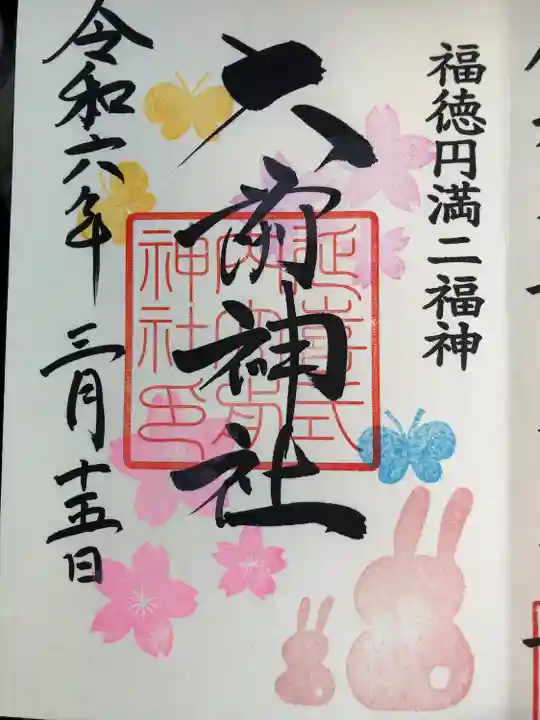 福徳円満二福神
大前神社
延喜式
内大前
神社印
令和六年 三月十五日